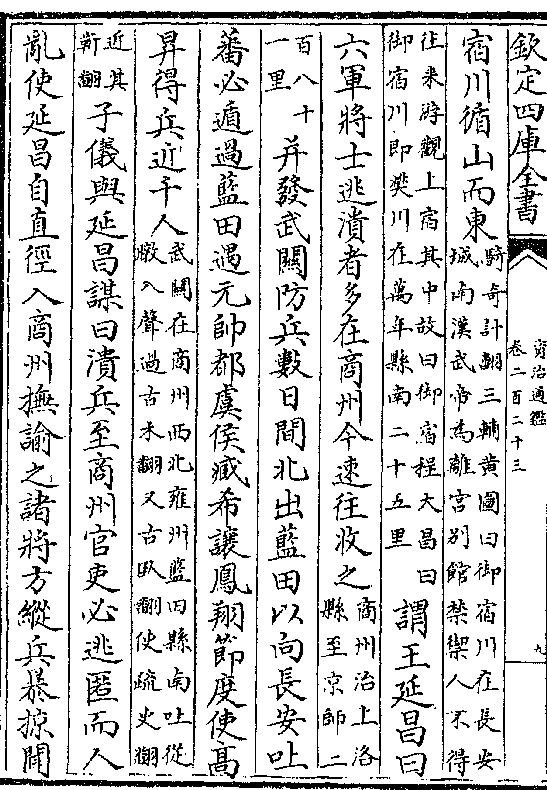 欽定四庫全書
資治通鑑
卷二百二十三
九
宿川循山而東騎奇計翻三輔黄圖曰御宿川在長安城南漢武帝為離宮别館禁禦人不得
往来游觀上宿其中故曰御宿程大昌曰御宿川即樊川在萬年縣南二十五里謂王延昌曰
六軍將士逃潰者多在商州今速往收之商州治上洛縣至京師二
百八十一里并發武關防兵數日間北出藍田以向長安吐
蕃必遁過藍田遇元帥都虞侯臧希讓鳳翔節度使髙
昇得兵近千人武關在商州西北雍州藍田縣南吐從暾入聲過古禾翻又古卧翻使疏吏翻
近其靳翻子儀與延昌謀曰潰兵至商州官吏必逃匿而人
亂使延昌自直徑入商州撫諭之諸將方縱兵暴掠聞